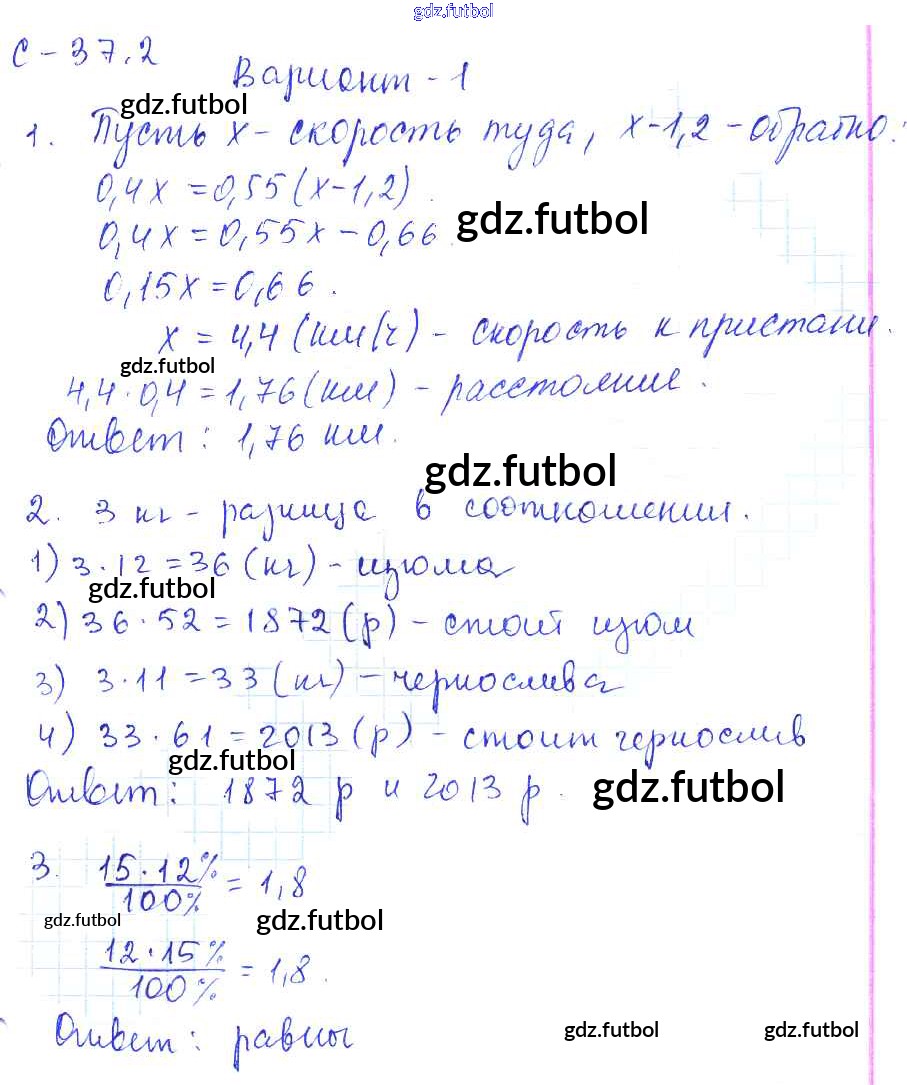 gdz.futbol
С-37.2
Вариант-1
gdz.futbol
1. Пусть х- скорость туда, х-1,2-обратно.
0,4х = 0,55(х-1,2).
gdz.futbol
0,4х = 0,55х - 0,66.
0,15х = 0,66.
х = 4,4 (км/ч) - скорость к пристани.
gdz.futbol
4,4·0,4 = 1,76 (км) - расстояние.
Ответ: 1,76 км.
gdz.futbol
2. 3 кг - разница в соотношении.
1) 3·12 = 36 (кг) - изюма
gdz.futbol
2) 36·52 = 1872 (р) - стоит изюм
3) 3·11 = 33 (кг) - чернослива
4) 33·61 = 2013 (р) - стоит чернослив
gdz.futbol
Ответ: 1872 р и 2013 р.
gdz.futbol
3. 15·12%/100% = 1,8
gdz.futbol
gdz.futbol
12·15%/100% = 1,8.
Ответ: равны
gdz.futbol
gdz.futbol